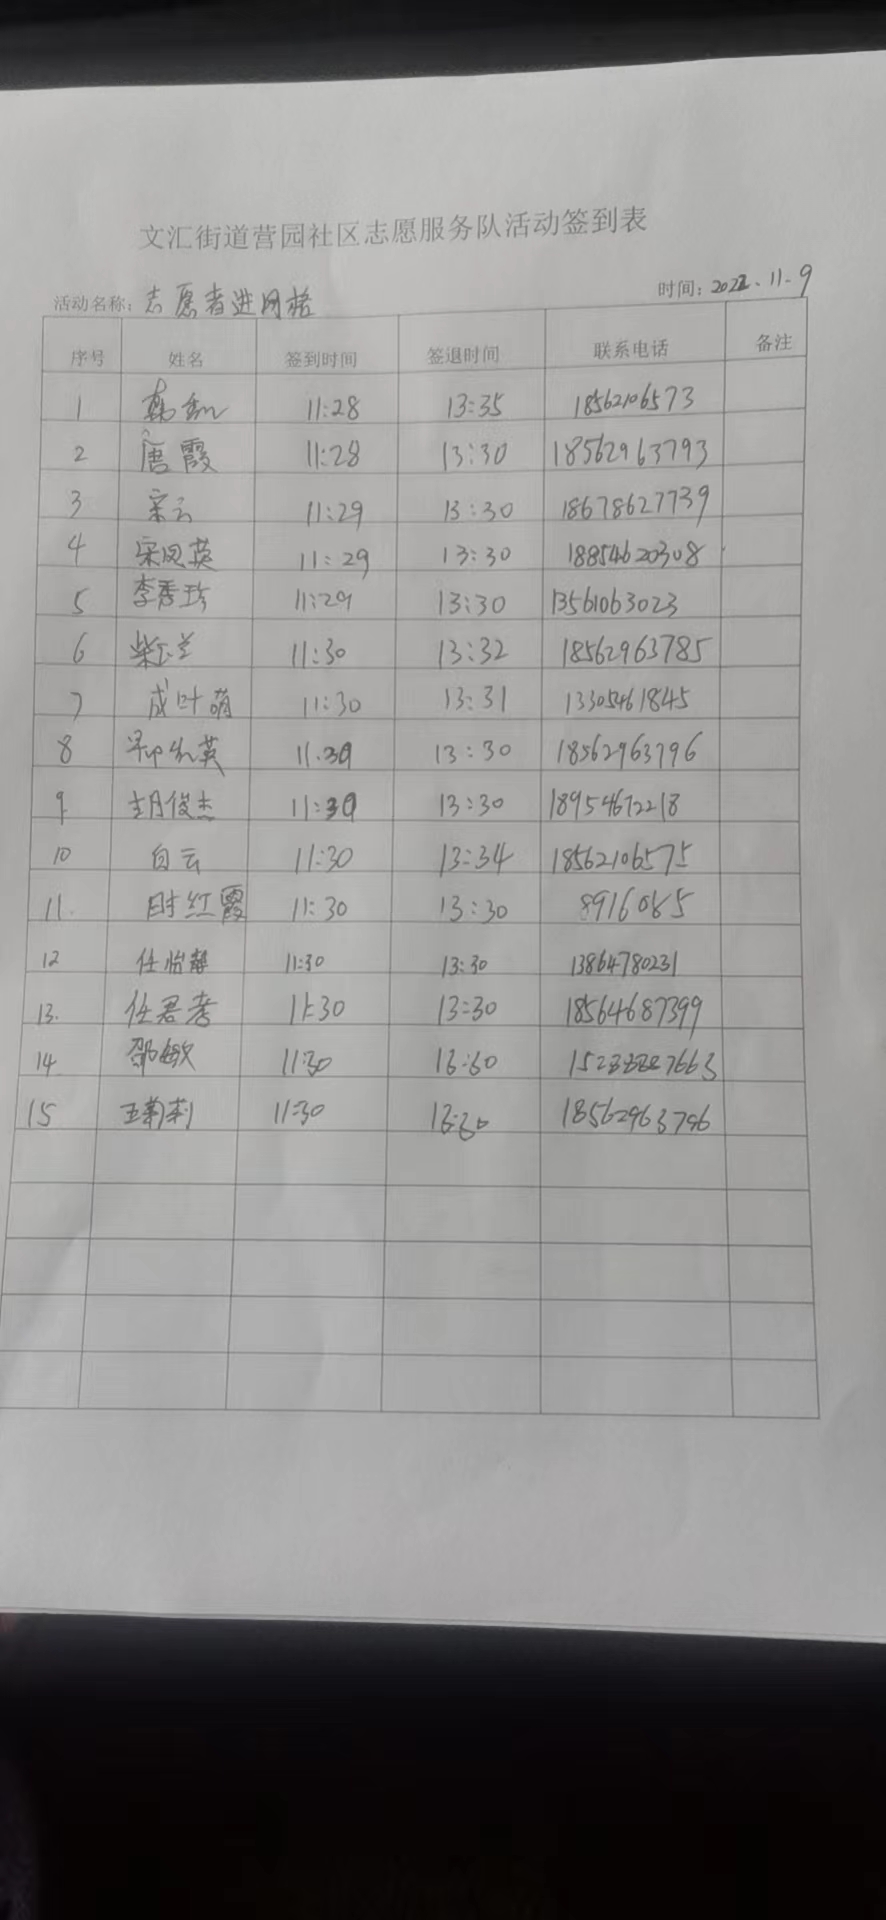 文汇街道营园社区志愿服务队活动签到表
活动名称：志愿者进网格 时间：2022.11.9
序号 姓名 签到时间 签退时间 联系电话 备注
1 韩 11:28 13:35 18562106573
2 唐霞 11:28 13:30 18562963793
3 宋云 11:29 13:30 18678627739
4 宋凤英 11:29 13:30 18854620308
5 李秀珍 11:29 13:30 13561063023
6 柴玉兰 11:30 13:32 18562963785
7 成叶萌 11:30 13:31 13305461845
8 英 11.30 13:30 18562963796
9 胡俊杰 11:30 13:30 18954672218
10 白云 11:30 13:34 18562106575
11. 时红霞 11:30 13:30 8916065
12 任怡静 11:30 13:30 13864780231
13. 任君 11:30 13:30 18564687399
14 邵敏 11:30 13:30
15 王菊莉 11:30 13:30 18562963796